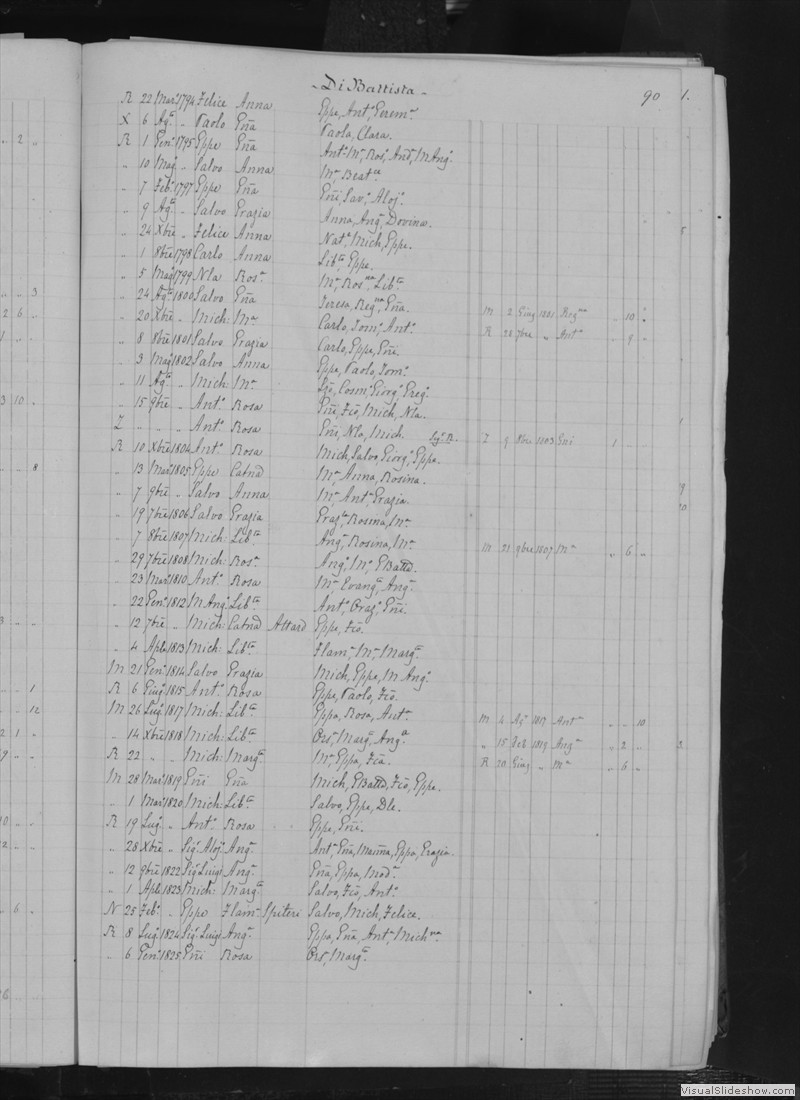 - Di Battista -
90 1.
R 22 Mar: 1794 Felice Anna Eppe, Ant: Gerem:
X 6 Ag: " Paolo Eña Paola, Clara.
R 1 Gen: 1795 Eppe Eña Ant: Mª Ros: And, M Ang:
" 10 Mag " Salvo Anna Mª Beat:
" 7 Feb: 1797 Eppe Eña Eñi, Sav: Aloj:
" 9 Ag: " Salvo Grazia Anna, Ang:
" 24 Xbre " Felice Anna Nat: Mich, Eppe.
" 1 8bre 1798 Carlo Anna Lib: Eppe.
" 5 Mag 1799 Nla Ros: Mª Ros: Lib:
" 24 Ag: 1800 Salvo Eña Teresa, Reg: Eña.
" 20 Xbre " Mich: Mª Carlo, Tom: Ant: M 2 Giug 1801 Reg: " 10
" 8 8bre 1801 Salvo Grazia Carlo, Eppe, Eñi. R 28 7bre " Ant: " 9
" 3 Mag 1802 Salvo Anna Eppe, Paolo, Tom:
" 11 Ag: " Mich: Mª Cosm: Giorg: Greg:
" 15 9bre " Ant: Rosa Eñi, Fco, Mich, Nla.
Z " " " Ant: Rosa Eñi, Nla, Mich. Z 9 1803 Eñi 1
R 10 Xbre 1804 Ant: Rosa Mich, Salvo, Giorg: Eppa.
" 13 Mar: 1805 Eppe Catnà Mª Anna, Rosina.
" 7 9bre " Salvo Anna Mª Ant: Grazia.
" 19 7bre 1806 Salvo Grazia Graz: Rosina, Mª
" 7 8bre 1807 Mich: Lib: Ang: Rosina, Mª M 21 9bre 1807 Mª " 6 "
" 29 7bre 1808 Mich: Ros: Ang: Mª GBattà.
" 23 Mar: 1810 Ant: Rosa Mª Evang: Ang:
" 22 Gen: 1812 M Ang: Lib: Ant: Graz: Eñi.
" 12 7bre " Mich: Catnà Attard Eppe, Fco.
" 4 Aple 1813 Mich: Lib: Flam: Mª Marg:
M 21 Gen: 1814 Salvo Grazia Mich, Eppa, M Ang:
R 6 Giug: 1815 Ant: Rosa Eppa, Paolo, Fco.
M 26 Lug: 1817 Mich: Lib: Eppa, Rosa, Ant: M 4 Ag: 1817 Ant: " " 10
" 14 Xbre 1818 Mich: Lib: Ors: Marg: Ang: " 15 Feb 1819 Ang: " 2 "
R 22 " " Mich: Marg: Mª Eppa, Fca. R 20 Giug " Mª " 6 "
M 28 Mar: 1819 Eñi Eña Mich, GBattà, Fco, Eppa.
" 1 Mar: 1820 Mich: Lib: Salvo, Eppa, Dle.
R 19 Lug: " Ant: Rosa Eppe, Eñi.
" 28 Xbre " Sig: Aloj: Ang: Ant: Eña, Eppa, Grazia.
" 12 9bre 1822 Sig: Luigi Ang: Eña, Eppa, Mod:
" 1 Aple 1823 Mich: Marg: Salvo, Fco, Ant:
N 25 Feb: " Eppe Flam: Spiteri Salvo, Mich, Felice.
R 8 Lug: 1824 Sig: Luigi Ang: Eppa, Eña, Ant: Mich:
" 6 Gen: 1825 Eñi Rosa Ors: Marg:
VisualSlideshow.com